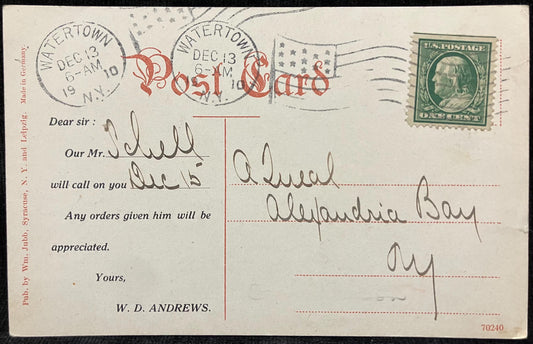 WATERTOWN
DEC 13
6-AM
19 10
N.Y.
WATERTOWN
DEC 13
6-AM
19 10
N.Y.
U.S. POSTAGE
ONE CENT
Post Card
Dear sir :
Our Mr. Schell
will call on you Dec 15
Any orders given him will be
appreciated.
Yours,
W. D. ANDREWS.
A Queal
Alexandria Bay
NY
Pub. by Wm. Jubb, Syracuse, N. Y. and Leipzig. Made in Germany
70240